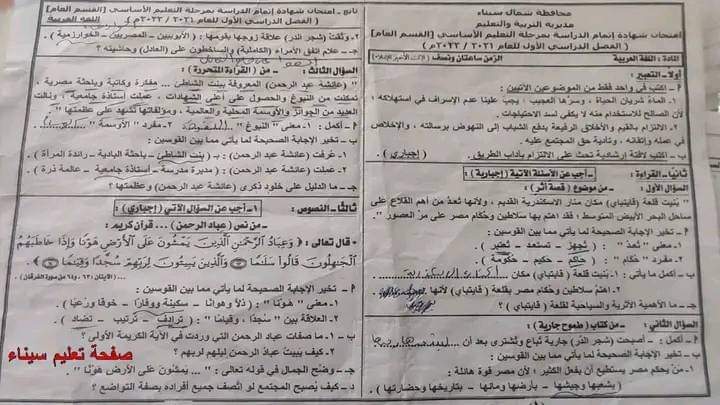 محافظة شمال سيناء
مديرية التربية والتعليم
امتحان شهادة إتمام الدراسة بمرحلة التعليم الأساسى [القسم العام]
( الفصل الدراسي الأول للعام ٢٠٢١ / ٢٠٢٢م )
المادة : اللغة العربية الزمن ساعتان ونصف
أولاً - التعبير :
أ - اكتب في واحد فقط من الموضوعين الآتيين :
١- الماءُ شريان الحياة ، وسرُّها العجيب ؛ يجبُ علينا عدم الإسراف في استهلاكه ؛
لأن الصالح للاستخدام منه لا يكفى لسد الاحتياجات .
٢- الالتزام بالقيم والأخلاق الرفيعة يدفع الشباب إلى النهوض برسالته ، والإخلاص
في عمله وإتقانه ، وتأدية حق المجتمع عليه .
ب - اكتب لافتة إرشادية تحث على الالتزام بآداب الطريق . ( إجبارى )
ثانياً - القراءة : - أجب عن الأسئلة الآتية (إجبارية) :
السؤال الأول : - من موضوع ( قصة أثر )
" بُنيت قلعة (قايتباي) مكان منار الاسكندرية القديم ، ولأنها تُعدُّ من أهم القلاع على
ساحل البحر الأبيض المتوسط ؛ فقد اهتم بها سلاطين وحُكام مصر على مرّ العصور " .
أ - تخير الإجابة الصحيحة لما يأتى مما بين القوسين :
١- معنى " تُعدّ " : ( تُجهز - تستعد - تُعتبر ) .
٢- مفرد " حُكام " : ( حاكم - حكيم - حكومة ) .
ب - أكمل ما يأتى : ١- بُنيت قلعة (قايتباي) مكان
٢- اهتمّ سلاطين وحُكام مصر بقلعة (قايتباي) لأنها
جـ - ما الأهمية الأثرية والسياحية لقلعة ( قايتباي ) ؟
السؤال الثانى : - من كتاب ( طموح جارية )
أ - أكمل : - أصبحت (شجر الدر) جارية تُباع وتُشترى بعد أن
ب - تخير الإجابة الصحيحة لما يأتى مما بين القوسين :
١- مَن يحكم مصر يستطيع أن يفعل الكثير ؛ لأن مصر قوة هائلة :
( بشعبها وجيشها - بأرضها ومائها - بتاريخها وحضارتها ) .
تابع - امتحان شهادة إتمام الدراسة بمرحلة التعليم الأساسى [القسم العام]
( الفصل الدراسي الأول للعام ٢٠٢١ / ٢٠٢٢م ) اللغة العربية
٢- وثَّقت (شجر الدر) علاقة زوجها بقومها : ( الأيوبيين - المصريين - الخوارزمية ) .
جـ - علام اتفق الأمراء (الكاملية) والساخطون على (العادل) وحاشيته ؟
السؤال الثالث : - من ( القراءة المتحررة ) :
" (عائشة عبد الرحمن) المعروفة ببنت الشاطئ ... مفكرة وكاتبة وباحثة مصرية ،
تمكنت من النبوغ والحصول على أعلى الشهادات ، عملت أستاذة جامعية ، ونالت
العديد من الجوائز والأوسمة المحلية والعالمية ، ومؤلفاتها تشهد على عظمتها "
أ - أكمل : ١- معنى " النبوغ " ٢- مفرد " الأوسمة "
ب - تخير الإجابة الصحيحة لما يأتى مما بين القوسين :
١- عُرفت (عائشة عبد الرحمن) بـ : ( بنت الشاطئ - باحثة البادية - رائدة المرأة ) .
٢- عملت (عائشة عبد الرحمن) : ( مديرة مدرسة - أستاذة جامعية - عالمة ذرة ) .
جـ - ما الدليل على خلود ذكرى (عائشة عبد الرحمن) وعظمتها ؟
ثالثاً - النصوص : ١- أجب عن السؤال الآتى (إجبارى) :
- من نص (عباد الرحمن) ... قرآن كريم :
- قال تعالى : ( وَعِبَادُ الرَّحْمَٰنِ الَّذِينَ يَمْشُونَ عَلَى الْأَرْضِ هَوْنًا وَإِذَا خَاطَبَهُمُ
الْجَاهِلُونَ قَالُوا سَلَامًا وَالَّذِينَ يَبِيتُونَ لِرَبِّهِمْ سُجَّدًا وَقِيَامًا )
( الآيتان ٦٣، ٦٤ من سورة الفرقان )
أ - تخير الإجابة الصحيحة لما يأتى مما بين القوسين :
١- معنى " هَونًا " : ( ذلاً وهوانًا - سكينة ووقارًا - خوفًا ورعبًا ) .
٢- العلاقة بين " سُجدًا ، وقيامًا " : ( ترادف - ترتيب - تضاد ) .
ب - ١- ما صفات عباد الرحمن التي وردت في الآية الكريمة الأولى ؟
٢- كيف يبيت عباد الرحمن ليلهم لربهم ؟
جـ - وضح الجمال في قوله تعالى : " ... يمشُونَ على الأرضِ هَونًا " .
د - كيف يُصبح المجتمع لو اتصف جميع أفراده بصفة التواضع ؟
صفحة تعليم سيناء